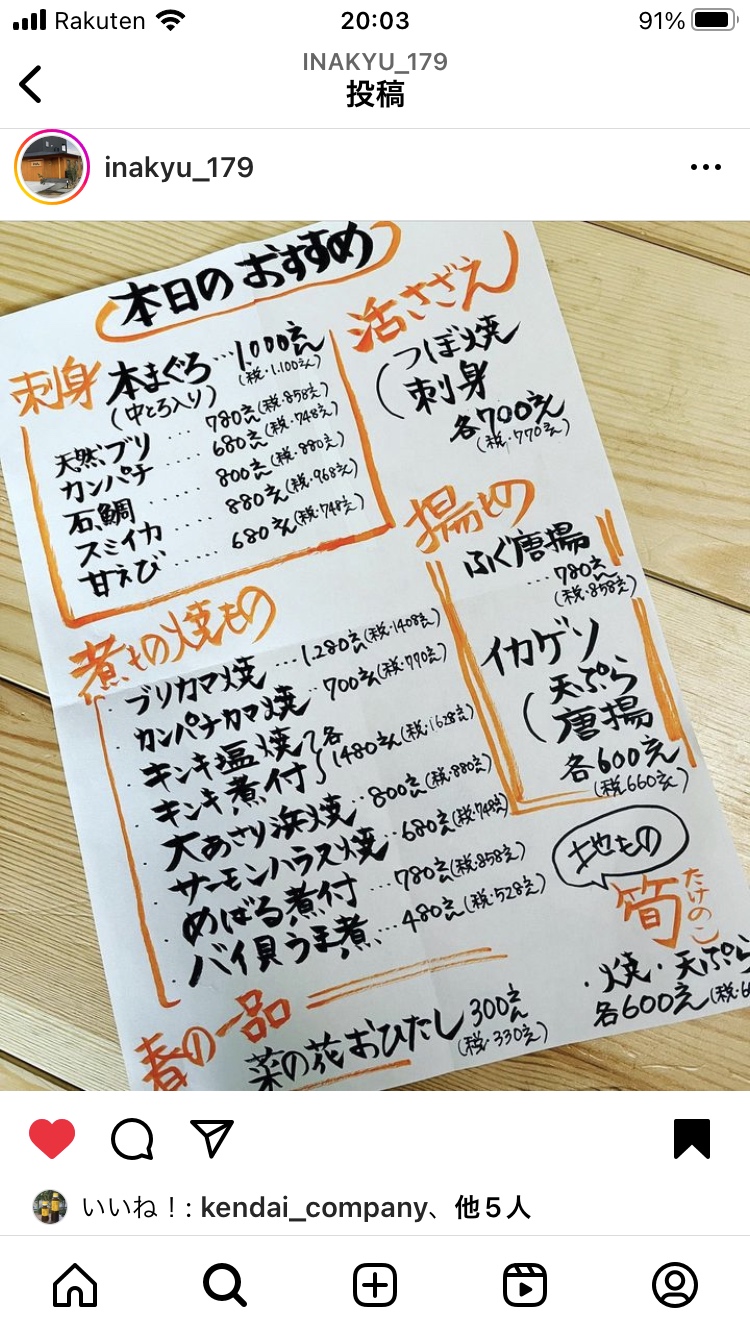 Rakuten 20:03 91%
INAKYU_179
投稿
inakyu_179
本日のおすすめ
刺身
本まぐろ…1.000円
(税・1.100円)
(中とろ入り)
天然ブリ…780円(税・858円)
カンパチ……680円(税・748円)
石鯛……800円(税・880円)
スミイカ……880円(税・968円)
甘えび……680円(税・748円)
活さざえ
つぼ焼
刺身
各700円
(税・770円)
揚もの
ふぐ唐揚
…780円
(税・858円)
イカゲソ
天ぷら
唐揚
各600円
(税660円)
煮もの焼もの
・ブリカマ焼…1.280円(税・1408円)
・カンパチカマ焼…700円(税・770円)
・キンキ塩焼 各
・キンキ煮付 1480円(税・1628円)
・大あさり浜焼…800円(税・880円)
・サーモンハラス焼…680円(税・748円)
・めばる煮付…780円(税・858円)
・バイ貝うま煮…480円(税・528円)
地もの
筍
たけのこ
・焼・天ぷら
各600円(税・6
春の一品
菜の花おひたし300円
(税・330円)
いいね！: kendai_company、他5人